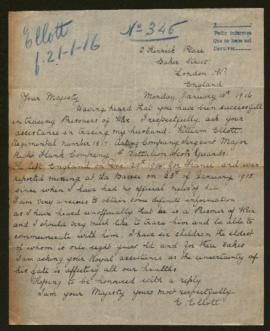 Ellott
f. 21-1-16
No 346
Baker Street
London. W.
England
Monday, January 10th 1916
Your Majesty
Having heard that you have been successful
in tracing Prisoners of War I respectfully ask your
assistance in tracing my husband. William Ellott.
Regimental number Acting Company Sergeant Major
Right Flank Company. Battalion Scots Guards.
He left England on Nov for France and was
reported missing at the Bassee on 25th of January 1915
since when I have had no official news of him
I am very anxious to obtain some definite information
as I have heard unofficially that he is a Prisoner of War
and I should very much like to trace him and be able to
communicate with him. I have six children the eldest
of whom is only eight years old and for their sakes
I am asking your Royal assistance as the uncertainty of
his fate is affecting all our healths.
Hoping to be honoured with a reply
I am your Majesty yours most respectfully.
E. Ellott.